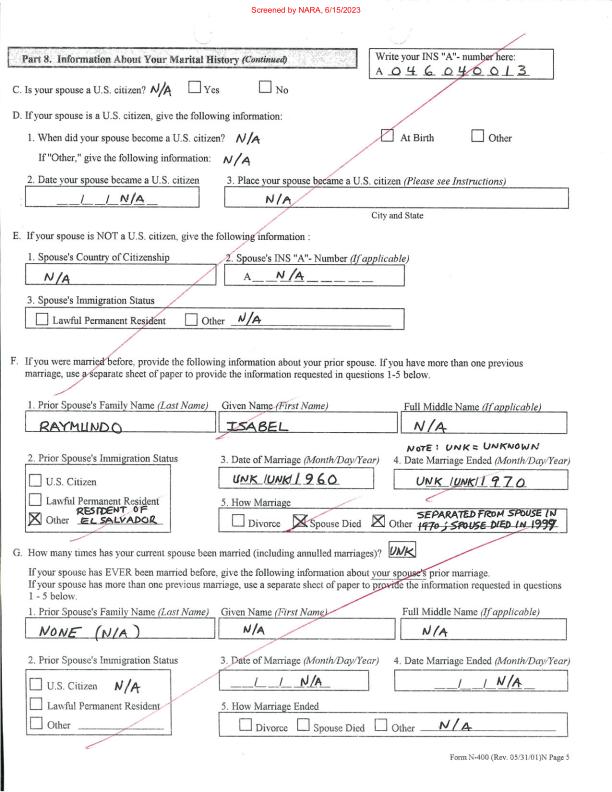 Screened by NARA, 6/15/2023
Part 8. Information About Your Marital History (Continued)
Write your INS "A"- number here:
A 0 4 6 0 4 0 0 1 3
C. Is your spouse a U.S. citizen? N/A Yes No
D. If your spouse is a U.S. citizen, give the following information:
1. When did your spouse become a U.S. citizen? N/A At Birth Other
If "Other," give the following information: N/A
2. Date your spouse became a U.S. citizen 3. Place your spouse became a U.S. citizen (Please see Instructions)
__/__/ N/A N/A
City and State
E. If your spouse is NOT a U.S. citizen, give the following information :
1. Spouse's Country of Citizenship 2. Spouse's INS "A"- Number (If applicable)
N/A A__ N/A _ _ _ _ _
3. Spouse's Immigration Status
Lawful Permanent Resident Other N/A
F. If you were married before, provide the following information about your prior spouse. If you have more than one previous
marriage, use a separate sheet of paper to provide the information requested in questions 1-5 below.
1. Prior Spouse's Family Name (Last Name) Given Name (First Name) Full Middle Name (If applicable)
RAYMUNDO ISABEL N/A
NOTE: UNK = UNKNOWN
2. Prior Spouse's Immigration Status 3. Date of Marriage (Month/Day/Year) 4. Date Marriage Ended (Month/Day/Year)
U.S. Citizen UNK /UNK/ 1960 UNK /UNK/ 1970
Lawful Permanent Resident 5. How Marriage
RESIDENT OF SEPARATED FROM SPOUSE IN
Other EL SALVADOR Divorce Spouse Died Other 1970; SPOUSE DIED IN 1999
G. How many times has your current spouse been married (including annulled marriages)? UNK
If your spouse has EVER been married before, give the following information about your spouse's prior marriage.
If your spouse has more than one previous marriage, use a separate sheet of paper to provide the information requested in questions
1 - 5 below.
1. Prior Spouse's Family Name (Last Name) Given Name (First Name) Full Middle Name (If applicable)
NONE (N/A) N/A N/A
2. Prior Spouse's Immigration Status 3. Date of Marriage (Month/Day/Year) 4. Date Marriage Ended (Month/Day/Year)
U.S. Citizen N/A __/__/ N/A __/__/ N/A
Lawful Permanent Resident 5. How Marriage Ended
Other Divorce Spouse Died Other N/A
Form N-400 (Rev. 05/31/01)N Page 5